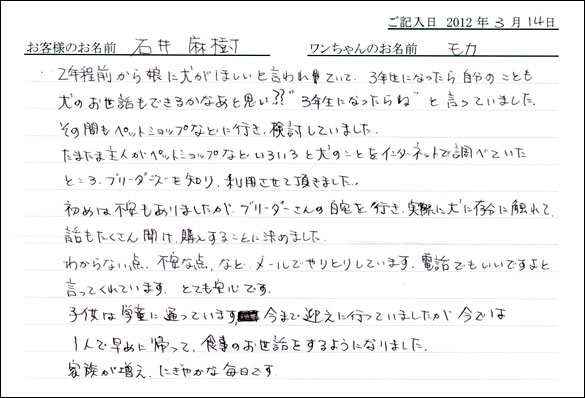 ご記入日 2012年3月14日
お客様のお名前 石井 麻樹 ワンちゃんのお名前 モカ
2年程前から娘に犬がほしいと言われていて、3年生になったら自分のことも
犬のお世話もできるかなあと思い??"3年生になったらね"と言っていました。
その間もペットショップなどに行き、検討していました。
たまたま主人がペットショップなどいろいろと犬のことをインターネットで調べていた
ところ、ブリーダーズを知り、利用させて頂きました。
初めは不安もありましたが、ブリーダーさんの自宅を行き、実際に犬に存分に触れて、
話もたくさん聞け、購入することに決めました。
わからない点、不安な点、など、メールでやりとりしています。電話でもいいですよと
言ってくれています。とても安心です。
子供は学童に通っています。今まで迎えに行っていましたが今では
1人で早めに帰って、食事のお世話をするようになりました。
家族が増え、にぎやかな毎日です。